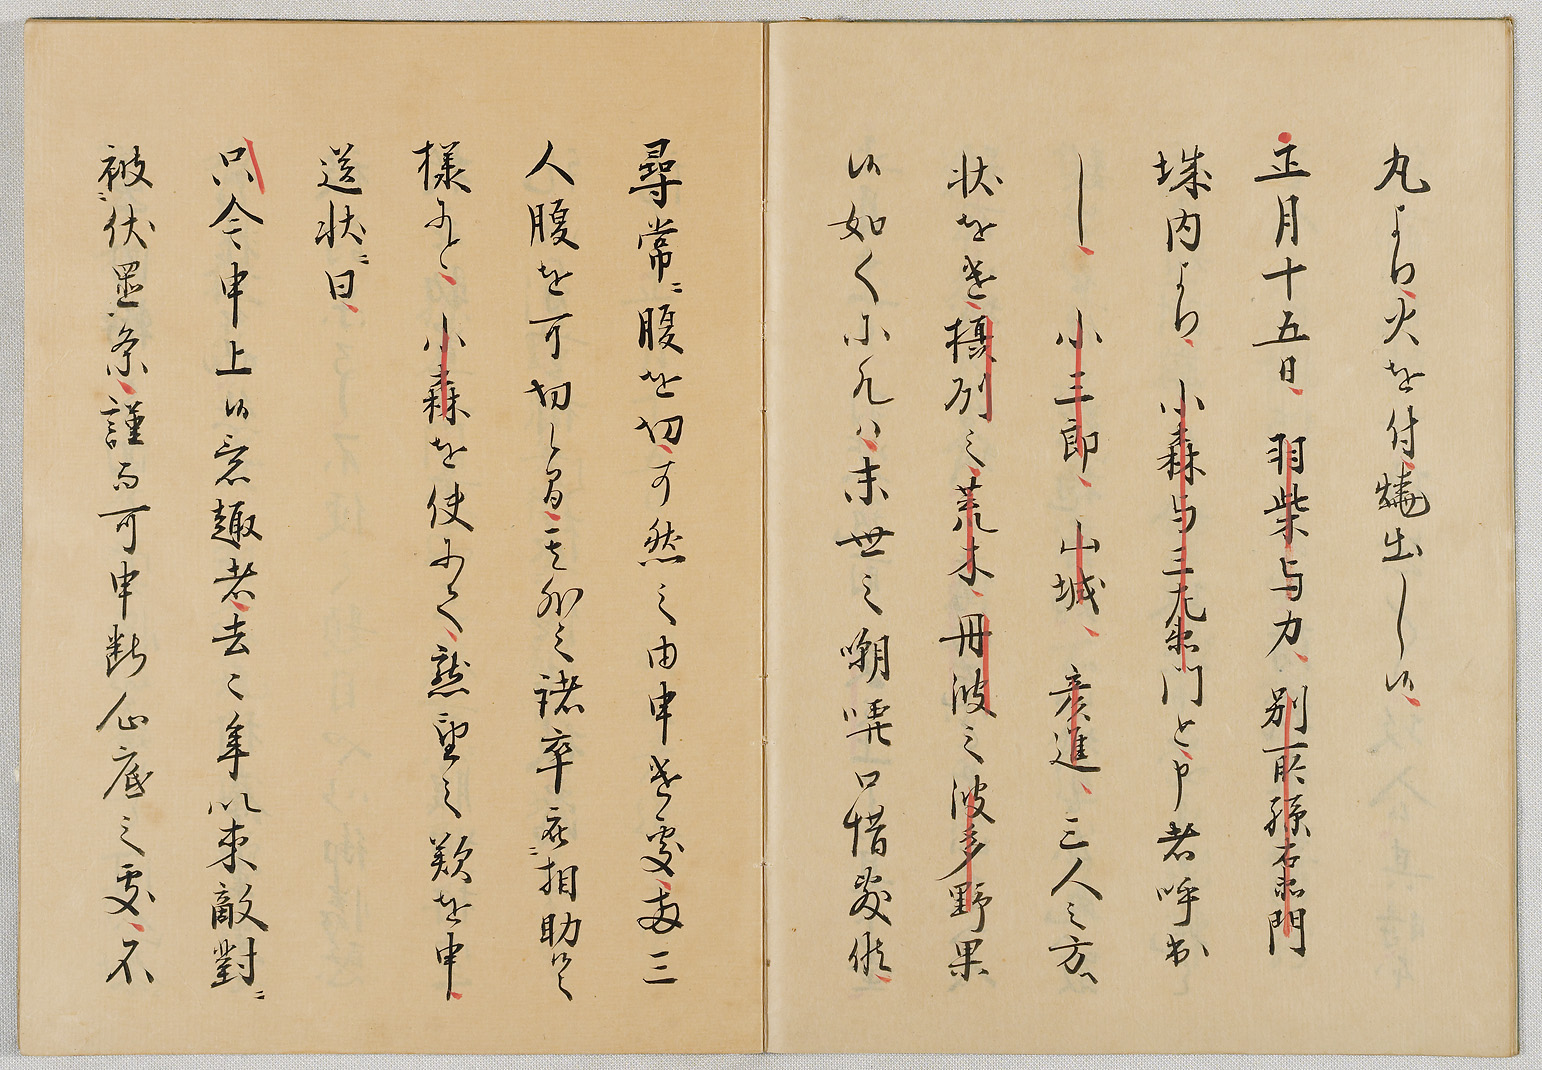 丸より火を付焼出し候
正月十五日羽柴与力別所孫右衛門
城内より小森与三左衛門と申者呼出
し小三郎山城彦進三人之方へ
状を遣摂州之荒木丹波之波多野果
候如く小九ハ末世之嘲哢口惜敷候
尋常ニ腹を切可然之由申遣処両三
人腹を可切と定其外之諸卒底ニ相助候へ
様にと小森を使にて懇望之歎を申
送状ニ曰
只今申上候意趣者去々年以来敵対ニ
被ニ伏置条謹而可申断心底之処不